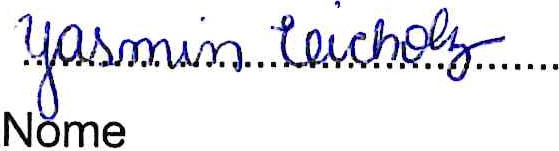 Yasmin Eicholz
Nome